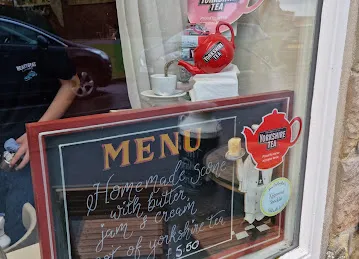 YORKSHIRE
TEA
YORKSHIRE
TEA
MENU
Homemade Scone
with butter,
jam & cream
pot of yorkshire tea
£5.50
YORKSHIRE
TEA